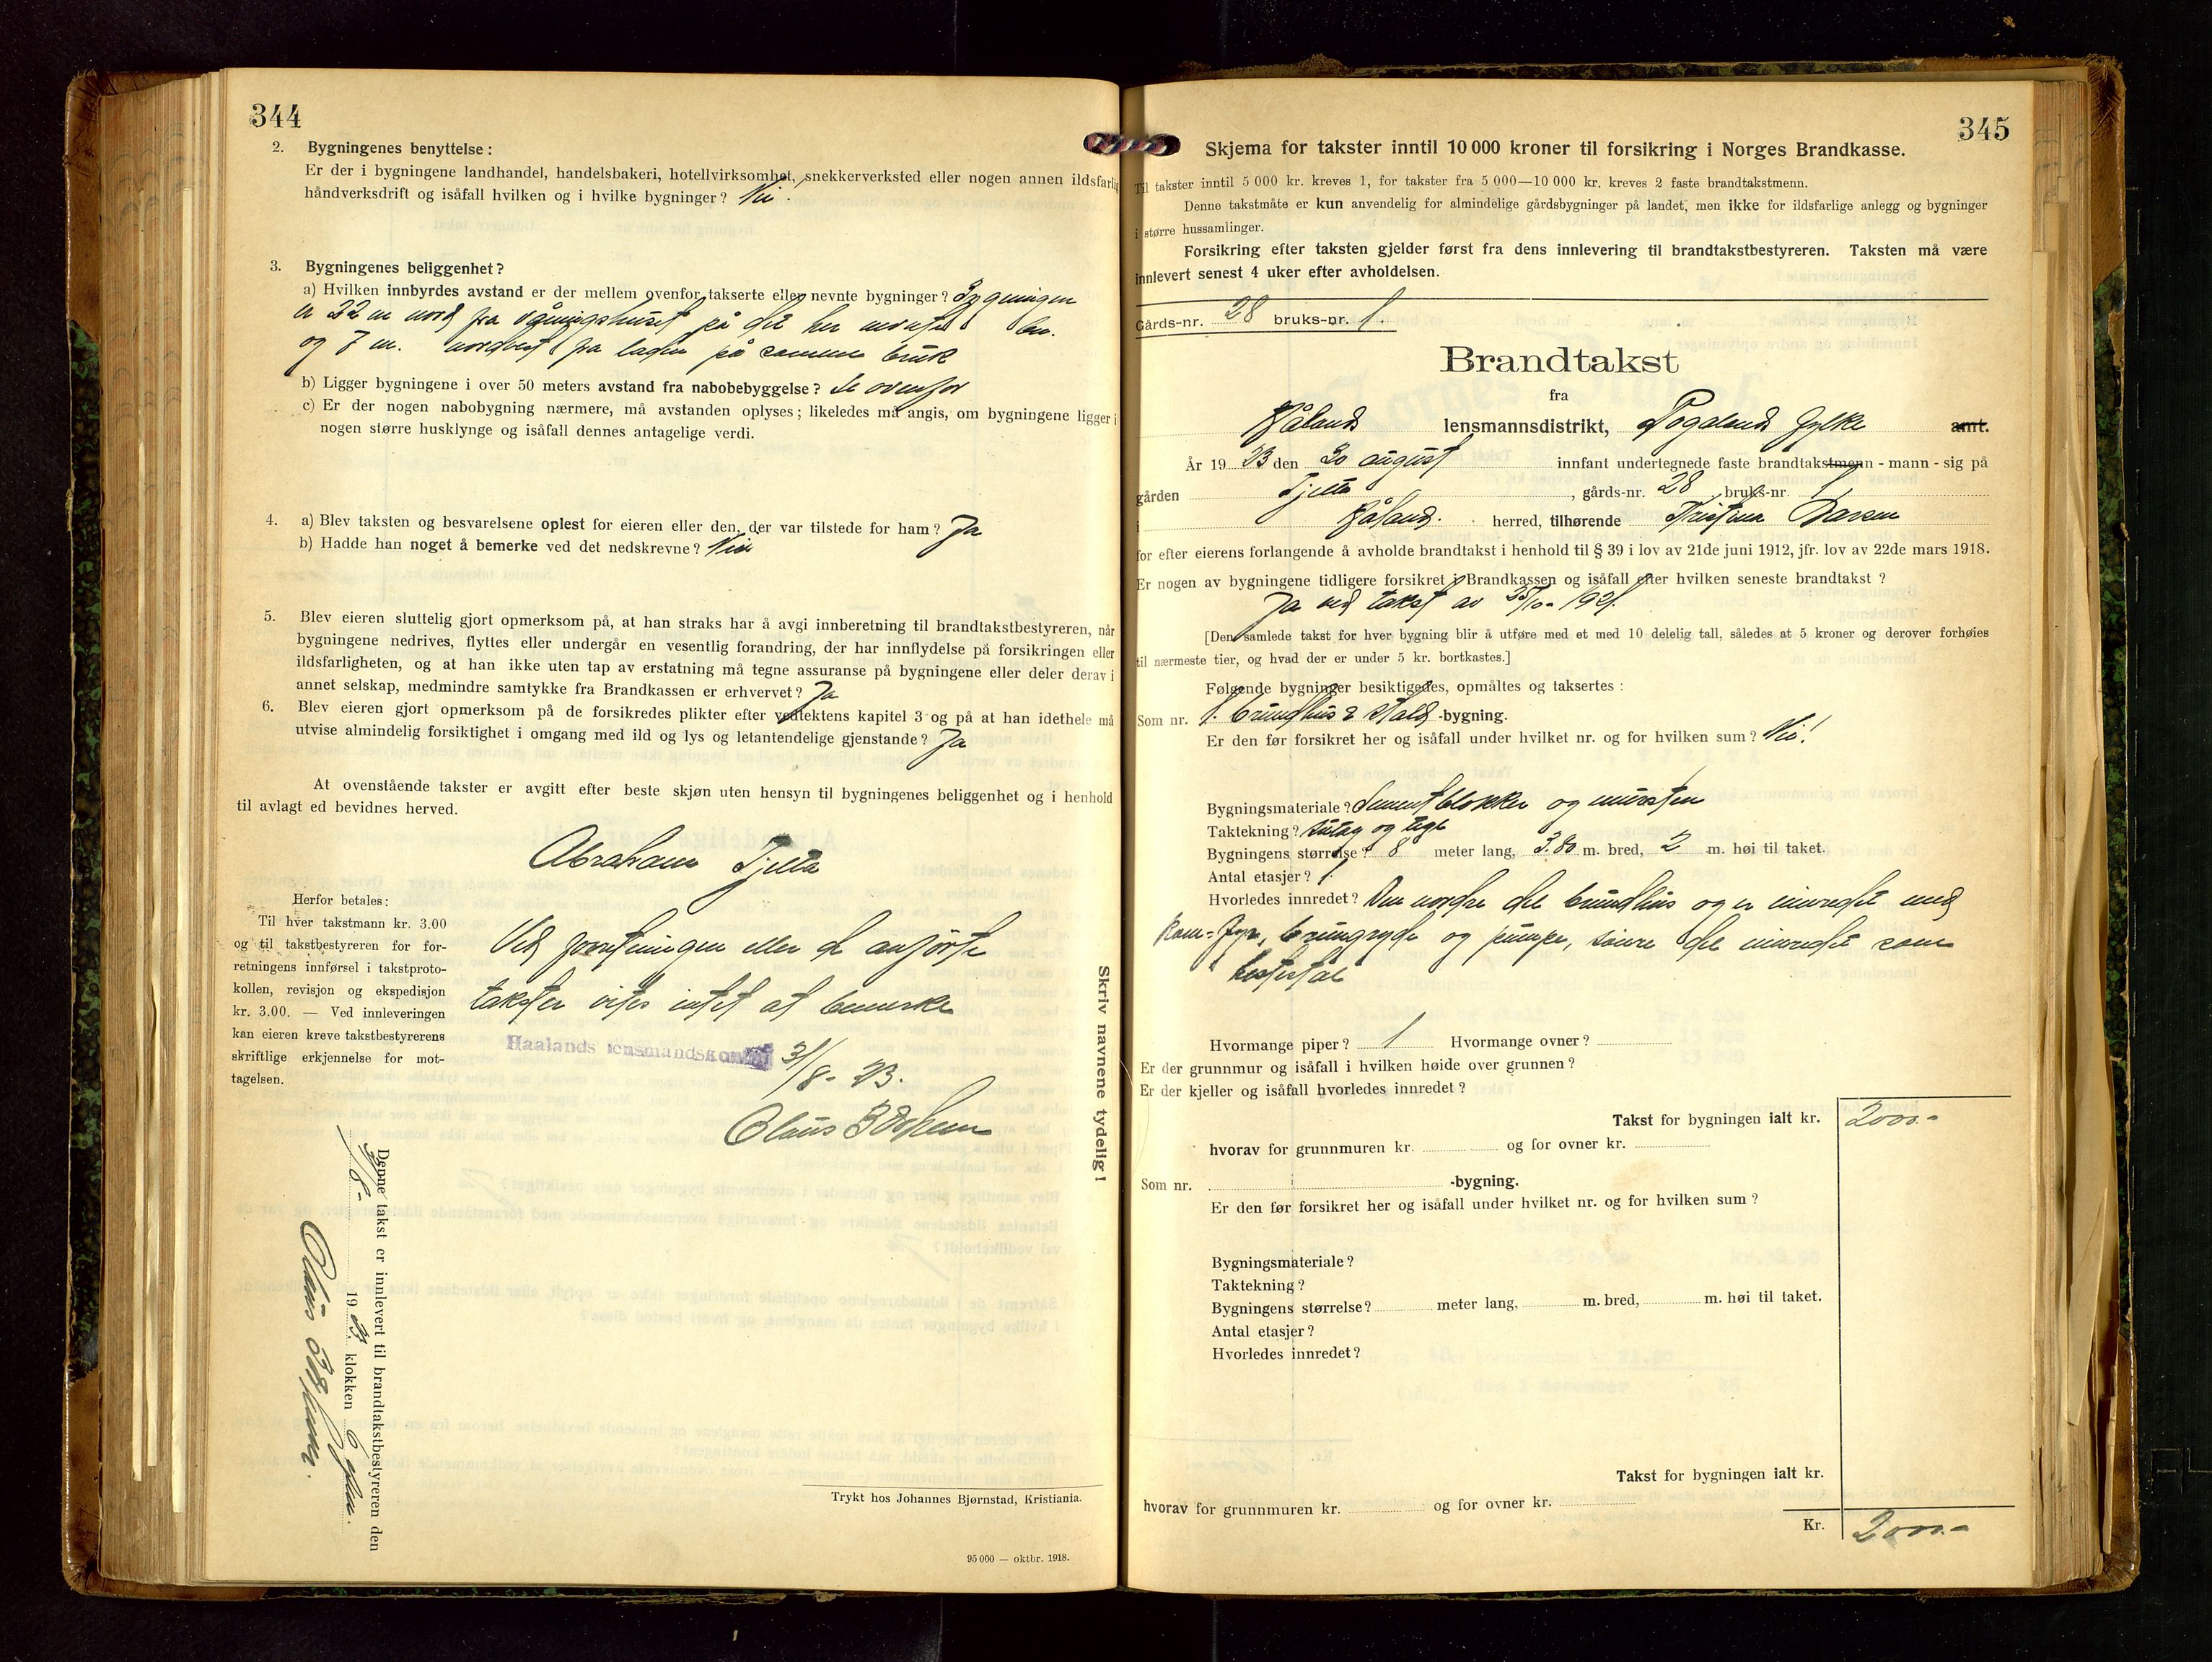 344
2. Bygningenes benyttelse :
Er der i bygningene landhandel, handelsbakeri, hotellvirksomhet, snekkerverksted eller nogen annen ildsfarlig
håndverksdrift og isåfall hvilken og i hvilke bygninger? Nei.
3. Bygningenes beliggenhet?
a) Hvilken innbyrdes avstand er der mellem ovenfor takserte eller nevnte bygninger? Bygningen
er 32 m nord fra våningshuset på det her nevnte br.
og 7 m. nordvest fra laden på samme bruk
b) Ligger bygningene i over 50 meters avstand fra nabobebyggelse? Se ovenfor
c) Er der nogen nabobygning nærmere, må avstanden oplyses; likeledes må angis, om bygningene ligger i
nogen større husklynge og isåfall dennes antagelige verdi.
4. a) Blev taksten og besvarelsene oplest for eieren eller den, der var tilstede for ham? Ja
b) Hadde han noget å bemerke ved det nedskrevne? Nei
5. Blev eieren sluttelig gjort opmerksom på, at han straks har å avgi innberetning til brandtakstbestyreren, når
bygningene nedrives, flyttes eller undergår en vesentlig forandring, der har innflydelse på forsikringen eller
ildsfarligheten, og at han ikke uten tap av erstatning må tegne assuranse på bygningene eller deler derav i
annet selskap, medmindre samtykke fra Brandkassen er erhvervet? Ja
6. Blev eieren gjort opmerksom på de forsikredes plikter efter vedtektens kapitel 3 og på at han idethele må
utvise almindelig forsiktighet i omgang med ild og lys og letantendelige gjenstande? Ja
At ovenstående takster er avgitt efter beste skjøn uten hensyn til bygningenes beliggenhet og i henhold
til avlagt ed bevidnes herved.
Abraham Tjelta
Herfor betales:
Til hver takstmann kr. 3.00
og til takstbestyreren for for-
retningens innførsel i takstproto-
kollen, revisjon og ekspedisjon
kr. 3.00. — Ved innleveringen
kan eieren kreve takstbestyrerens
skriftlige erkjennelse for mot-
tagelsen.
Ved forretningen eller de anførte
takster vites intet at bemerke
Haalands lensmandskontor 31/8- 23.
Olaus
Skriv navnene tydelig!
Denne takst er innlevert til brandtakstbestyreren den
31/8- 1923. klokken 6 efm.
Olaus
Trykt hos Johannes Bjørnstad, Kristiania.
95 000 — oktbr. 1918.
345
Skjema for takster inntil 10 000 kroner til forsikring i Norges Brandkasse.
Til takster inntil 5 000 kr. kreves 1, for takster fra 5 000—10 000 kr. kreves 2 faste brandtakstmenn.
Denne takstmåte er kun anvendelig for almindelige gårdsbygninger på landet, men ikke for ildsfarlige anlegg og bygninger
i større hussamlinger.
Forsikring efter taksten gjelder først fra dens innlevering til brandtakstbestyreren. Taksten må være
innlevert senest 4 uker efter avholdelsen.
Gårds-nr. 28 bruks-nr. 1.
Brandtakst
fra
Håland lensmannsdistrikt, Rogaland fylke amt.
År 1923 den 30 august innfant undertegnede faste brandtakstmenn - mann - sig på
gården Tjelta, gårds-nr. 28 bruks-nr. 1
i Håland. herred, tilhørende Kristian Larsen
for efter eierens forlangende å avholde brandtakst i henhold til § 39 i lov av 21de juni 1912, jfr. lov av 22de mars 1918.
Er nogen av bygningene tidligere forsikret i Brandkassen og isåfall efter hvilken seneste brandtakst ?
Ja ved takst av 25/10- 1921.
[Den samlede takst for hver bygning blir å utføre med et med 10 delelig tall, således at 5 kroner og derover forhøies
til nærmeste tier, og hvad der er under 5 kr. bortkastes.]
Følgende bygninger besiktigedes, opmåltes og taksertes :
Som nr. 1. brundhus & Stald -bygning.
Er den før forsikret her og isåfall under hvilket nr. og for hvilken sum? Nei!
Bygningsmateriale? Sementblokker og mursten
Taktekning? sutag og tegl
Bygningens størrelse? 8 meter lang, 3.80 m. bred, 2 m. høi til taket.
Antal etasjer? 1
Hvorledes innredet? Den nordre del brundhus og er innredet med
kom-fyr, brungryde og pumpe, søndre del innredet som
hestestal
Hvormange piper? 1 Hvormange ovner?
Er der grunnmur og isåfall i hvilken høide over grunnen?
Er der kjeller og isåfall hvorledes innredet?
Takst for bygningen ialt kr. 2000.-
hvorav for grunnmuren kr. og for ovner kr.
Som nr. -bygning.
Er den før forsikret her og isåfall under hvilket nr. og for hvilken sum?
Bygningsmateriale?
Taktekning?
Bygningens størrelse? meter lang, m. bred, m. høi til taket.
Antal etasjer?
Hvorledes innredet?
Takst for bygningen ialt kr.
hvorav for grunnmuren kr. og for ovner kr.
Kr. 2000.-